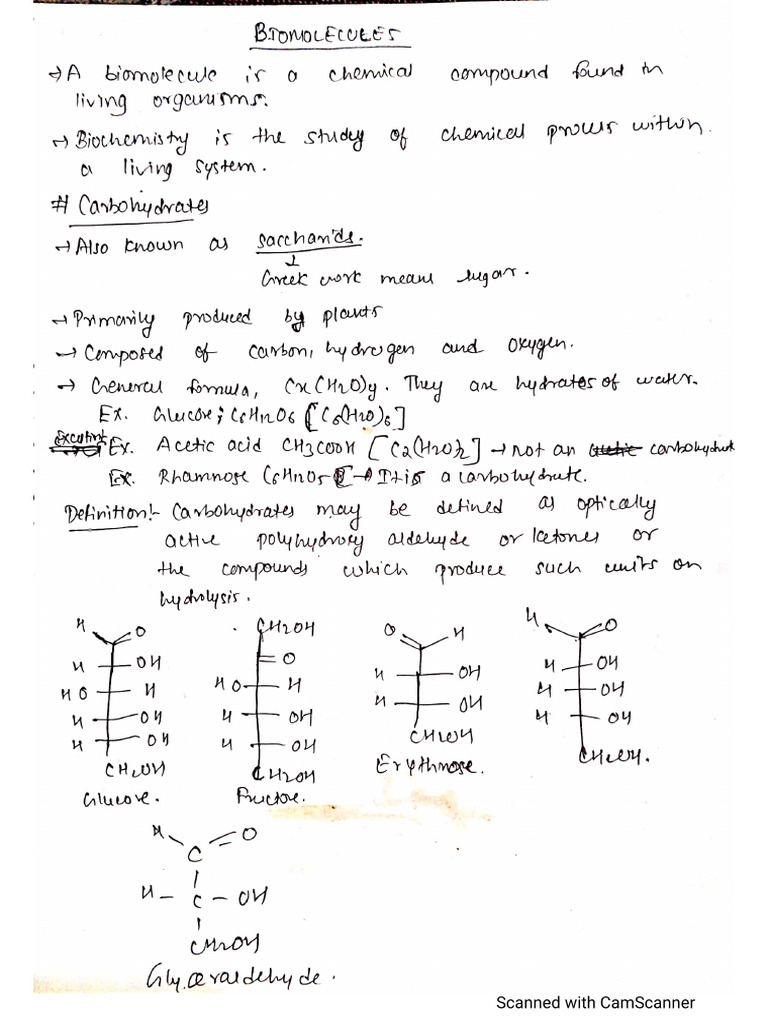 BIOMOLECULES
→ A biomolecule is a chemical compound found in
living organisms.
→ Biochemistry is the study of chemical process within
a living system.
# Carbohydrates
→ Also known as saccharids.
↓
Greek work means sugar.
→ Primarily produced by plants
→ Composed of carbon, hydrogen and oxygen.
→ General formula, Cx(H2O)y. They are hydrates of water.
Ex. Glucose; C6H12O6 [C6(H2O)6]
Ex. Acetic acid CH3COOH [C2(H2O)2] → not an carbohydrate
Ex. Rhamnose C6H12O5 → It is a carbohydrate.
Definition:- Carbohydrates may be defined as optically
active polyhydroxy aldehyde or ketones or
the compounds which produce such units on
hydrolysis.
H O CH2OH O H H O
H OH O H OH H OH
HO H HO H H OH H OH
H OH H OH CH2OH H OH
H OH H OH Erythrose. CH2OH.
CH2OH CH2OH
Glucose. Fructose.
H O
C
H - C - OH
CH2OH
Glyceraldehyde.
Scanned with CamScanner